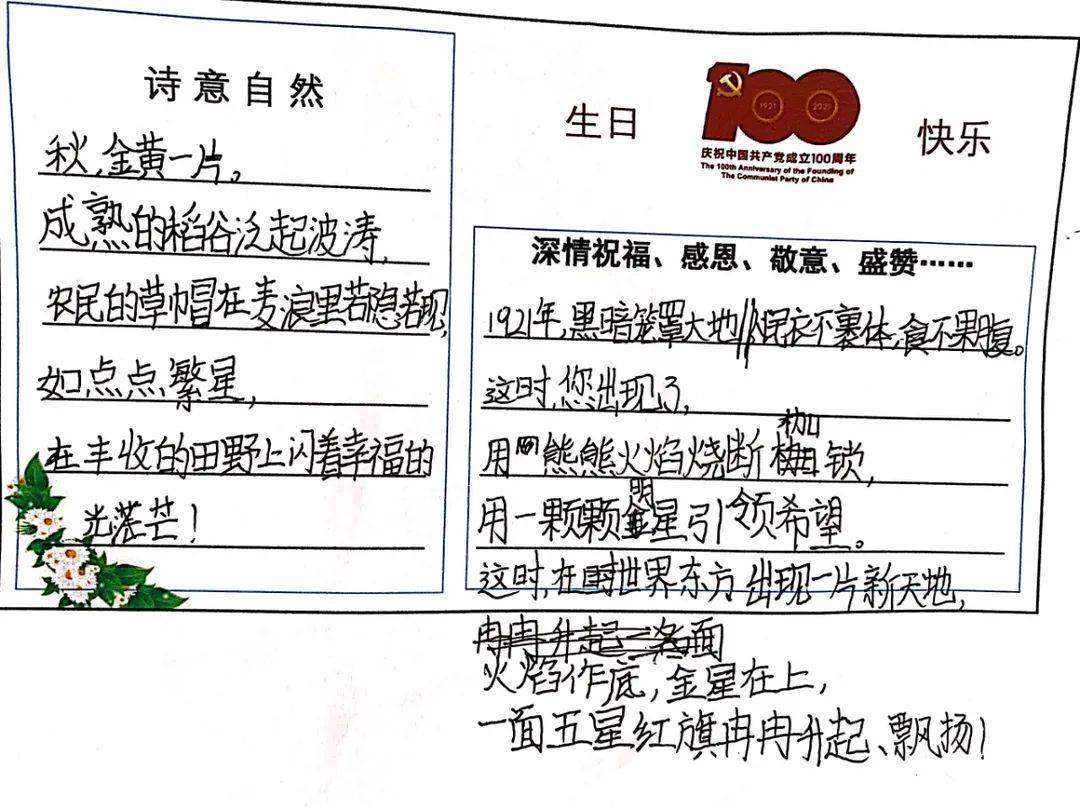 诗意自然
秋，金黄一片。
成熟的稻谷泛起波涛，
农民的草帽在麦浪里若隐若现，
如点点繁星，
在丰收的田野上闪着幸福的
光芒！
生日
100
1921
2021
庆祝中国共产党成立100周年
The 100th Anniversary of the Founding of
The Communist Party of China
快乐
深情祝福、感恩、敬意、盛赞……
1921年，黑暗笼罩大地，人民衣不裹体，食不果腹。
这时，您出现了，
用熊熊火焰烧断枷锁，
用一颗颗明星引领希望。
这时，在世界东方出现一片新天地，
冉冉升起一面
火焰作底，金星在上，
一面五星红旗冉冉升起、飘扬！